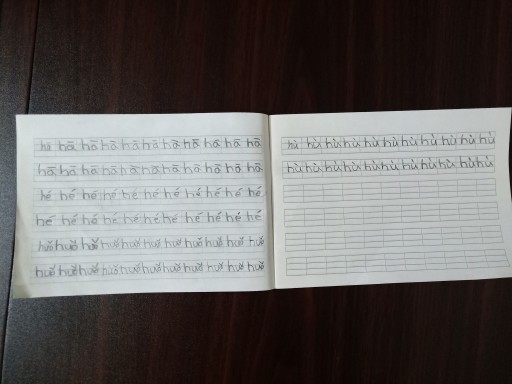 hā hā hā hā hā hā hā hā hā hā hā
hā hā hā hā hā hā hā hā hā hā hā
hé hé hé hé hé hé hé hé hé hé hé
hé hé hé hé hé hé hé hé hé hé hé
huǒ huǒ huǒ huǒ huǒ huǒ huǒ huǒ huǒ huǒ huǒ
huǒ huǒ huǒ huǒ huǒ huǒ huǒ huǒ huǒ huǒ huǒ
hù hù hù hù hù hù hù hù hù hù hù
hù hù hù hù hù hù hù hù hù hù hù